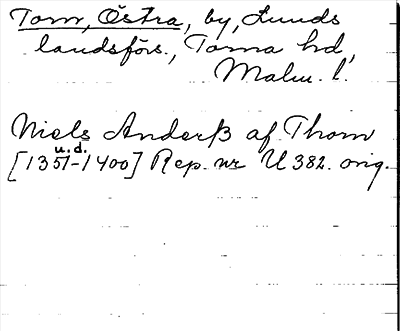 Torn, Östra, by, Lunds
landsförs., Torna hd,
Malm. l.
Niels Anderß af Thorn
u.d.
[1351-1400] Rep. nr U 382. orig.